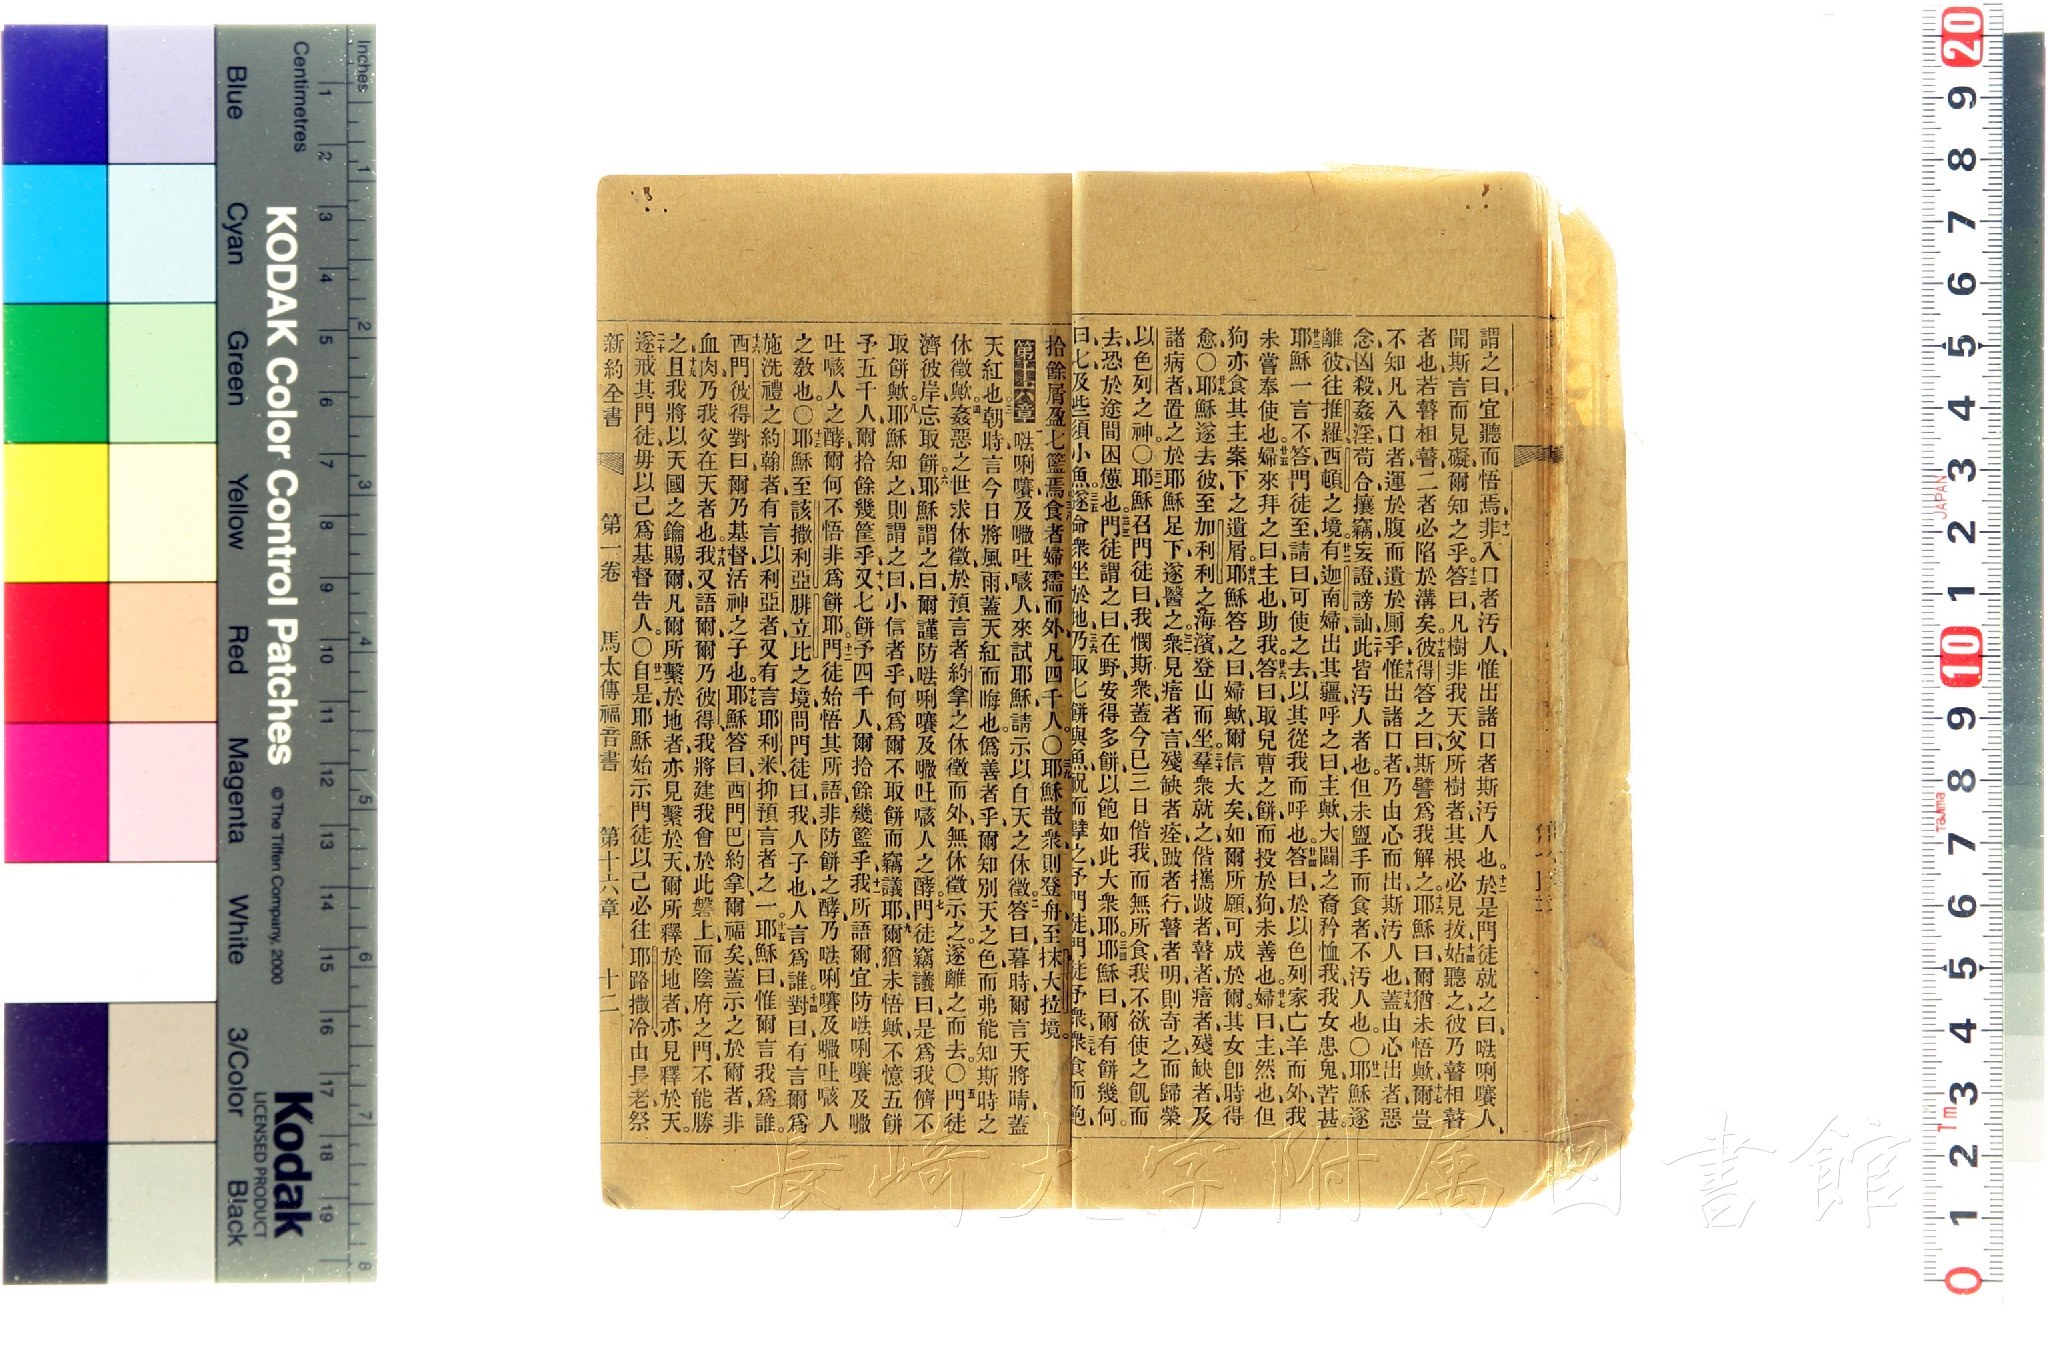 謂之曰宜聽而悟焉非入口者汚人惟出諸口者斯汚人也於是門徒就之曰𠵽唎㘔人
聞斯言而見礙爾知之乎答曰凡樹非我天父所樹者其根必見拔姑聽之彼乃瞽相瞽
者也若瞽相瞽二者必陷於溝矣彼得答之曰斯譬爲我解之耶穌曰爾猶未悟歟爾豈
不知凡入口者運於腹而遺於厠乎惟出諸口者乃由心而出斯汚人也蓋由心出者惡
念凶殺姦淫苟合攘竊妄證謗訕此皆汚人者也但未盥手而食者不汚人也〇耶穌遂
離彼往推羅西頓之境有迦南婦出其疆呼之曰主歟大闢之裔矜恤我我女患鬼苦甚
耶穌一言不答門徒至請曰可使之去以其從我而呼也答曰於以色列家亡羊而外我
未嘗奉使也婦來拜之曰主也助我答曰取兒曹之餅而投於狗未善也婦曰主然也但
狗亦食其主案下之遺屑耶穌答之曰婦歟爾信大矣如爾所願可成於爾其女卽時得
愈〇耶穌遂去彼至加利利之海濱登山而坐羣衆就之偕攜跛者瞽者瘖者殘缺者及
諸病者置之於耶穌足下遂醫之衆見瘖者言殘缺者痊跛者行瞽者明則奇之而歸榮
以色列之神〇耶穌召門徒曰我憫斯衆蓋今已三日偕我而無所食我不欲使之飢而
去恐於途間困憊也門徒謂之曰在野安得多餅以飽如此大衆耶耶穌曰爾有餅幾何
曰七及些須小魚遂命衆坐於地乃取七餅與魚祝而擘之予門徒門徒予衆衆食而飽
拾餘屑盈七籃焉食者婦孺而外凡四千人〇耶穌散衆則登舟至抹大拉境
第十六章 𠵽唎㘔及㘔吐㗒人來試耶穌請示以自天之休徵答曰暮時爾言天將晴蓋
天紅也朝時言今日將風雨蓋天紅而晦也僞善者乎爾知別天之色而弗能知斯時之
休徵歟姦惡之世求休徵於預言者約拿之休徵而外無休徵示之遂離之而去〇門徒
濟彼岸忘取餅耶穌謂之曰爾謹防𠵽唎㘔及㘔吐㗒人之酵門徒竊議曰是爲我儕不
取餅歟耶穌知之則謂之曰小信者乎何爲爾不取餅而竊議耶爾猶未悟歟不憶五餅
予五千人爾拾餘幾筐乎又七餅予四千人爾拾餘幾籃乎我所語爾宜防𠵽唎㘔及㘔
吐㗒人之酵爾何不悟非爲餅耶門徒始悟其所語非防餅之酵乃𠵽唎㘔及㘔吐㗒人
之教也〇耶穌至該撒利亞腓立比之境問門徒曰我人子也人言爲誰對曰有言爾爲
施洗禮之約翰者有言以利亞者又有言耶利米抑預言者之一耶穌曰惟爾言我爲誰
西門彼得對曰爾乃基督活神之子也耶穌答曰西門巴約拿爾福矣蓋示之於爾者非
血肉乃我父在天者也我又語爾爾乃彼得我將建我會於此磐上而陰府之門不能勝
之且我將以天國之鑰賜爾凡爾所繫於地者亦見繫於天爾所釋於地者亦見釋於天
遂戒其門徒毋以己爲基督告人〇自是耶穌始示門徒以己必往耶路撒冷由長老祭
新約全書 第一卷 馬太傳福音書 第十六章 十二
長崎大学附属図書館
KODAK Color Control Patches
© The Tiffen Company, 2000
Kodak
LICENSED PRODUCT
Inches
Centimetres
Blue Cyan Green Yellow Red Magenta White 3/Color Black
1 2 3 4 5 6 7 8 9 10 11 12 13 14 15 16 17 18 19
1 2 3 4 5 6 7 8
20 9 8 7 6 5 4 3 2 1 10 9 8 7 6 5 4 3 2 1 0
JAPAN
Tajima
Tm